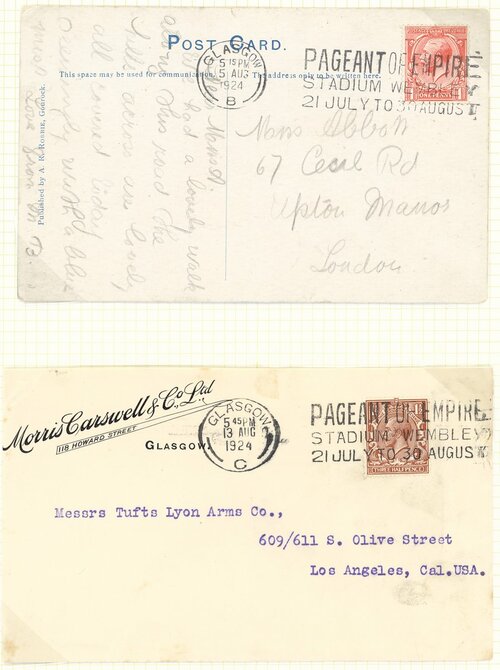 POST CARD.
This space may be used for communication.
The address only to be written here.
Published by A. E. ROSHER, Gourock.
GLASGOW
5 15 PM
5 AUG
1924
B
PAGEANT OF EMPIRE
STADIUM WEMBLEY
21 JULY TO 30 AUGUST
ONE PENNY
had a lovely walk
along this road the
are lovely
all
today
with a
love from
Miss Abbott
67 Cecil Rd
Upton Manor
London
Morris Carswell & Co. Ltd
116 HOWARD STREET
GLASGOW.
GLASGOW
5 45 PM
13 AUG
1924
C
PAGEANT OF EMPIRE
STADIUM WEMBLEY
21 JULY TO 30 AUGUST
THREE HALFPENCE
Messrs Tufts Lyon Arms Co.,
609/611 S. Olive Street
Los Angeles, Cal.USA.